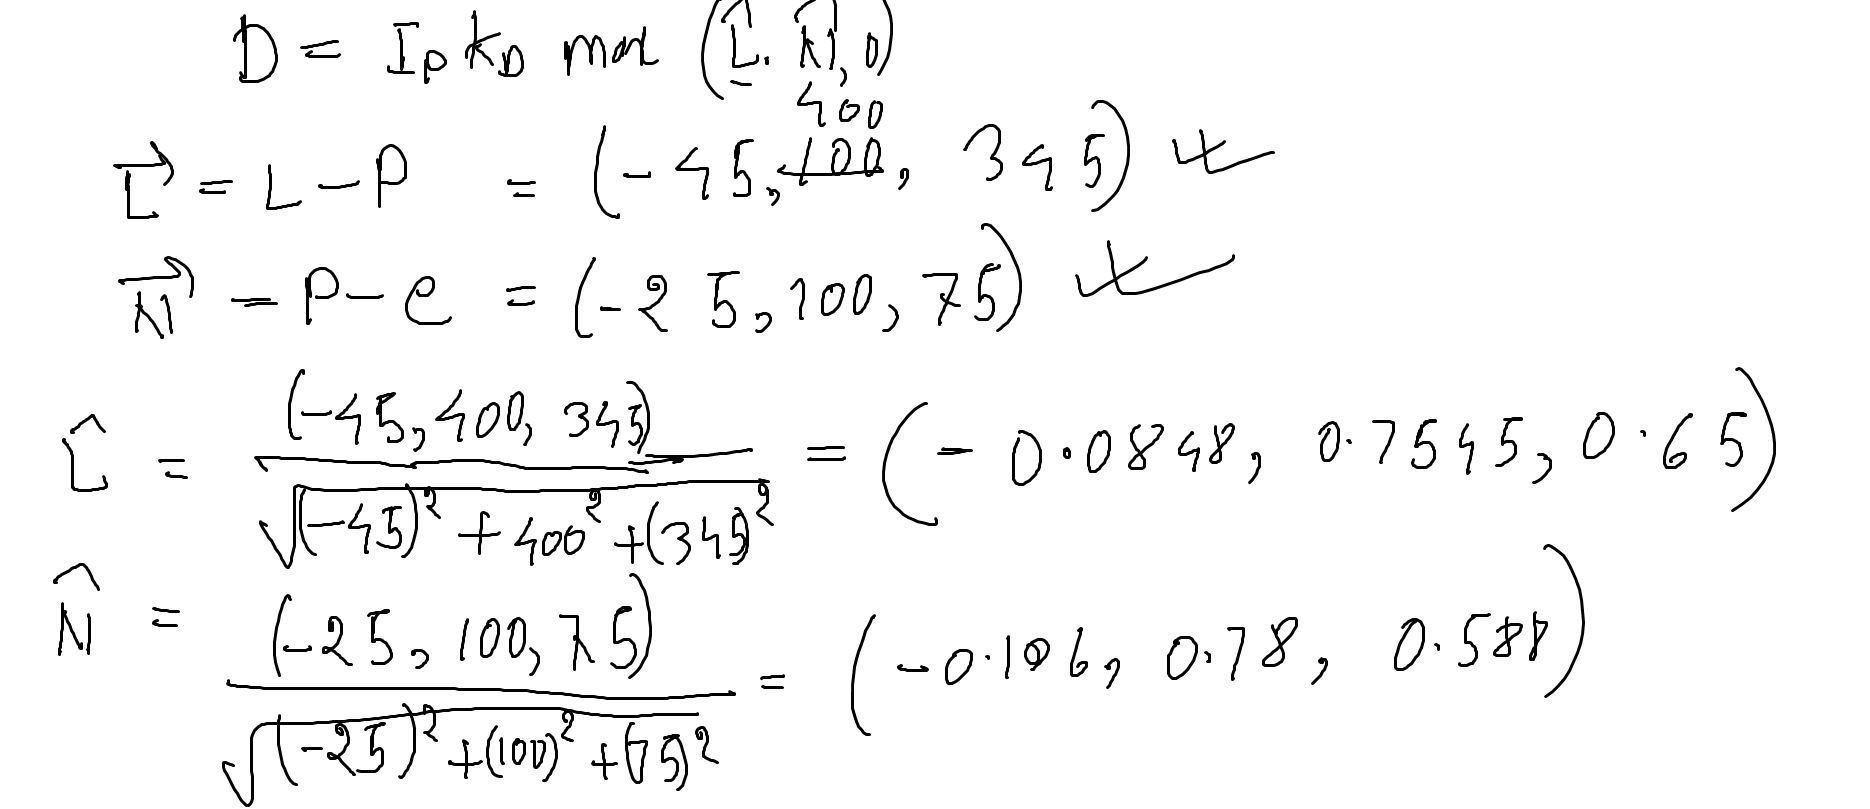 D = I_P k_D max (L̂. N̂, 0)
400
L⃗ = L - P = (-45, 100, 345)
N⃗ = P - e = (-25, 100, 75)
L̂ = (-45, 400, 345) / √((-45)² + 400² + (345)² = (-0.0848, 0.7545, 0.65)
N̂ = (-25, 100, 75) / √((-25)² + (100)² + (75)² = (-0.106, 0.78, 0.588)